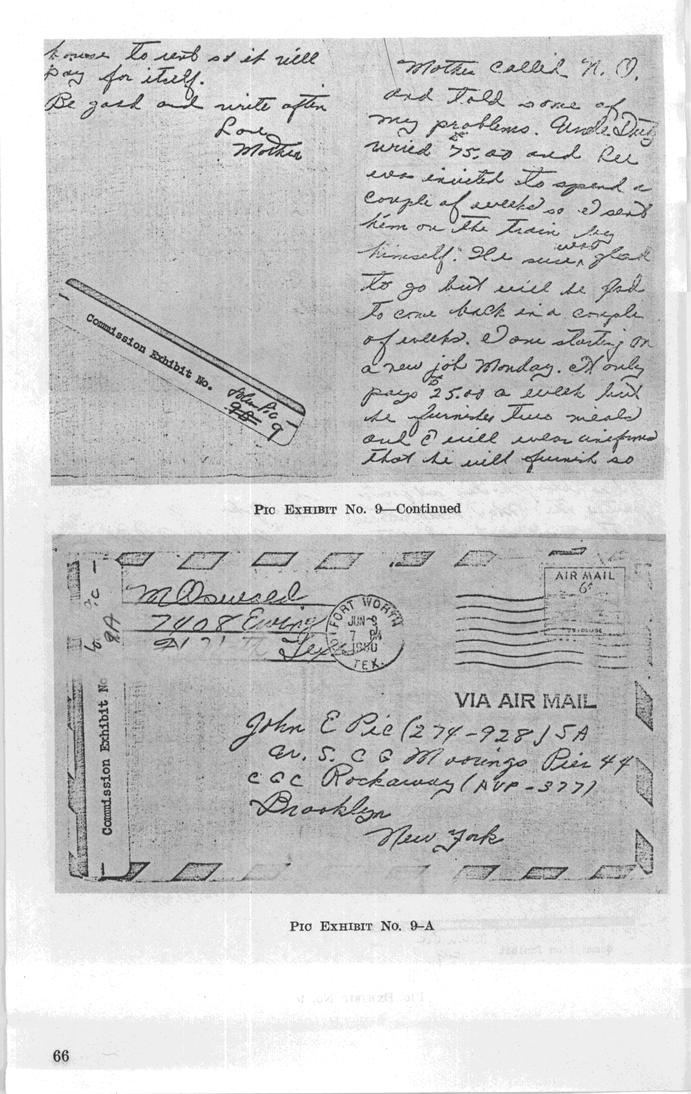 house to rent so it will
pay for itself.
Be good and write often
Love
Mother
Commission Exhibit No.
John Pic
9
Mother called N. O.
and told some of
my problems. Uncle
wried 75.00 and Lee
was invited to spend a
couple of weeks so I sent
him on the train by
himself. He sure was glad
to go but will be glad
to come back in a couple
of weeks. I am starting on
a new job Monday. It only
pays 25.00 a week but
he furnishes two meals
and I will wear uniforms
that he will furnish so
PIC EXHIBIT No. 9—Continued
9A
Commission Exhibit No
M Oswald
7408 Ewing
Tex
FORT WORTH
JUN
7 PM
1950
TEX.
AIR MAIL
6¢
VIA AIR MAIL
John E Pic (274-928) SA
U. S. C G Moorings Pier 44
CGC Rockaway (AVP-377)
Brooklyn
New York
PIC EXHIBIT No. 9–A
66